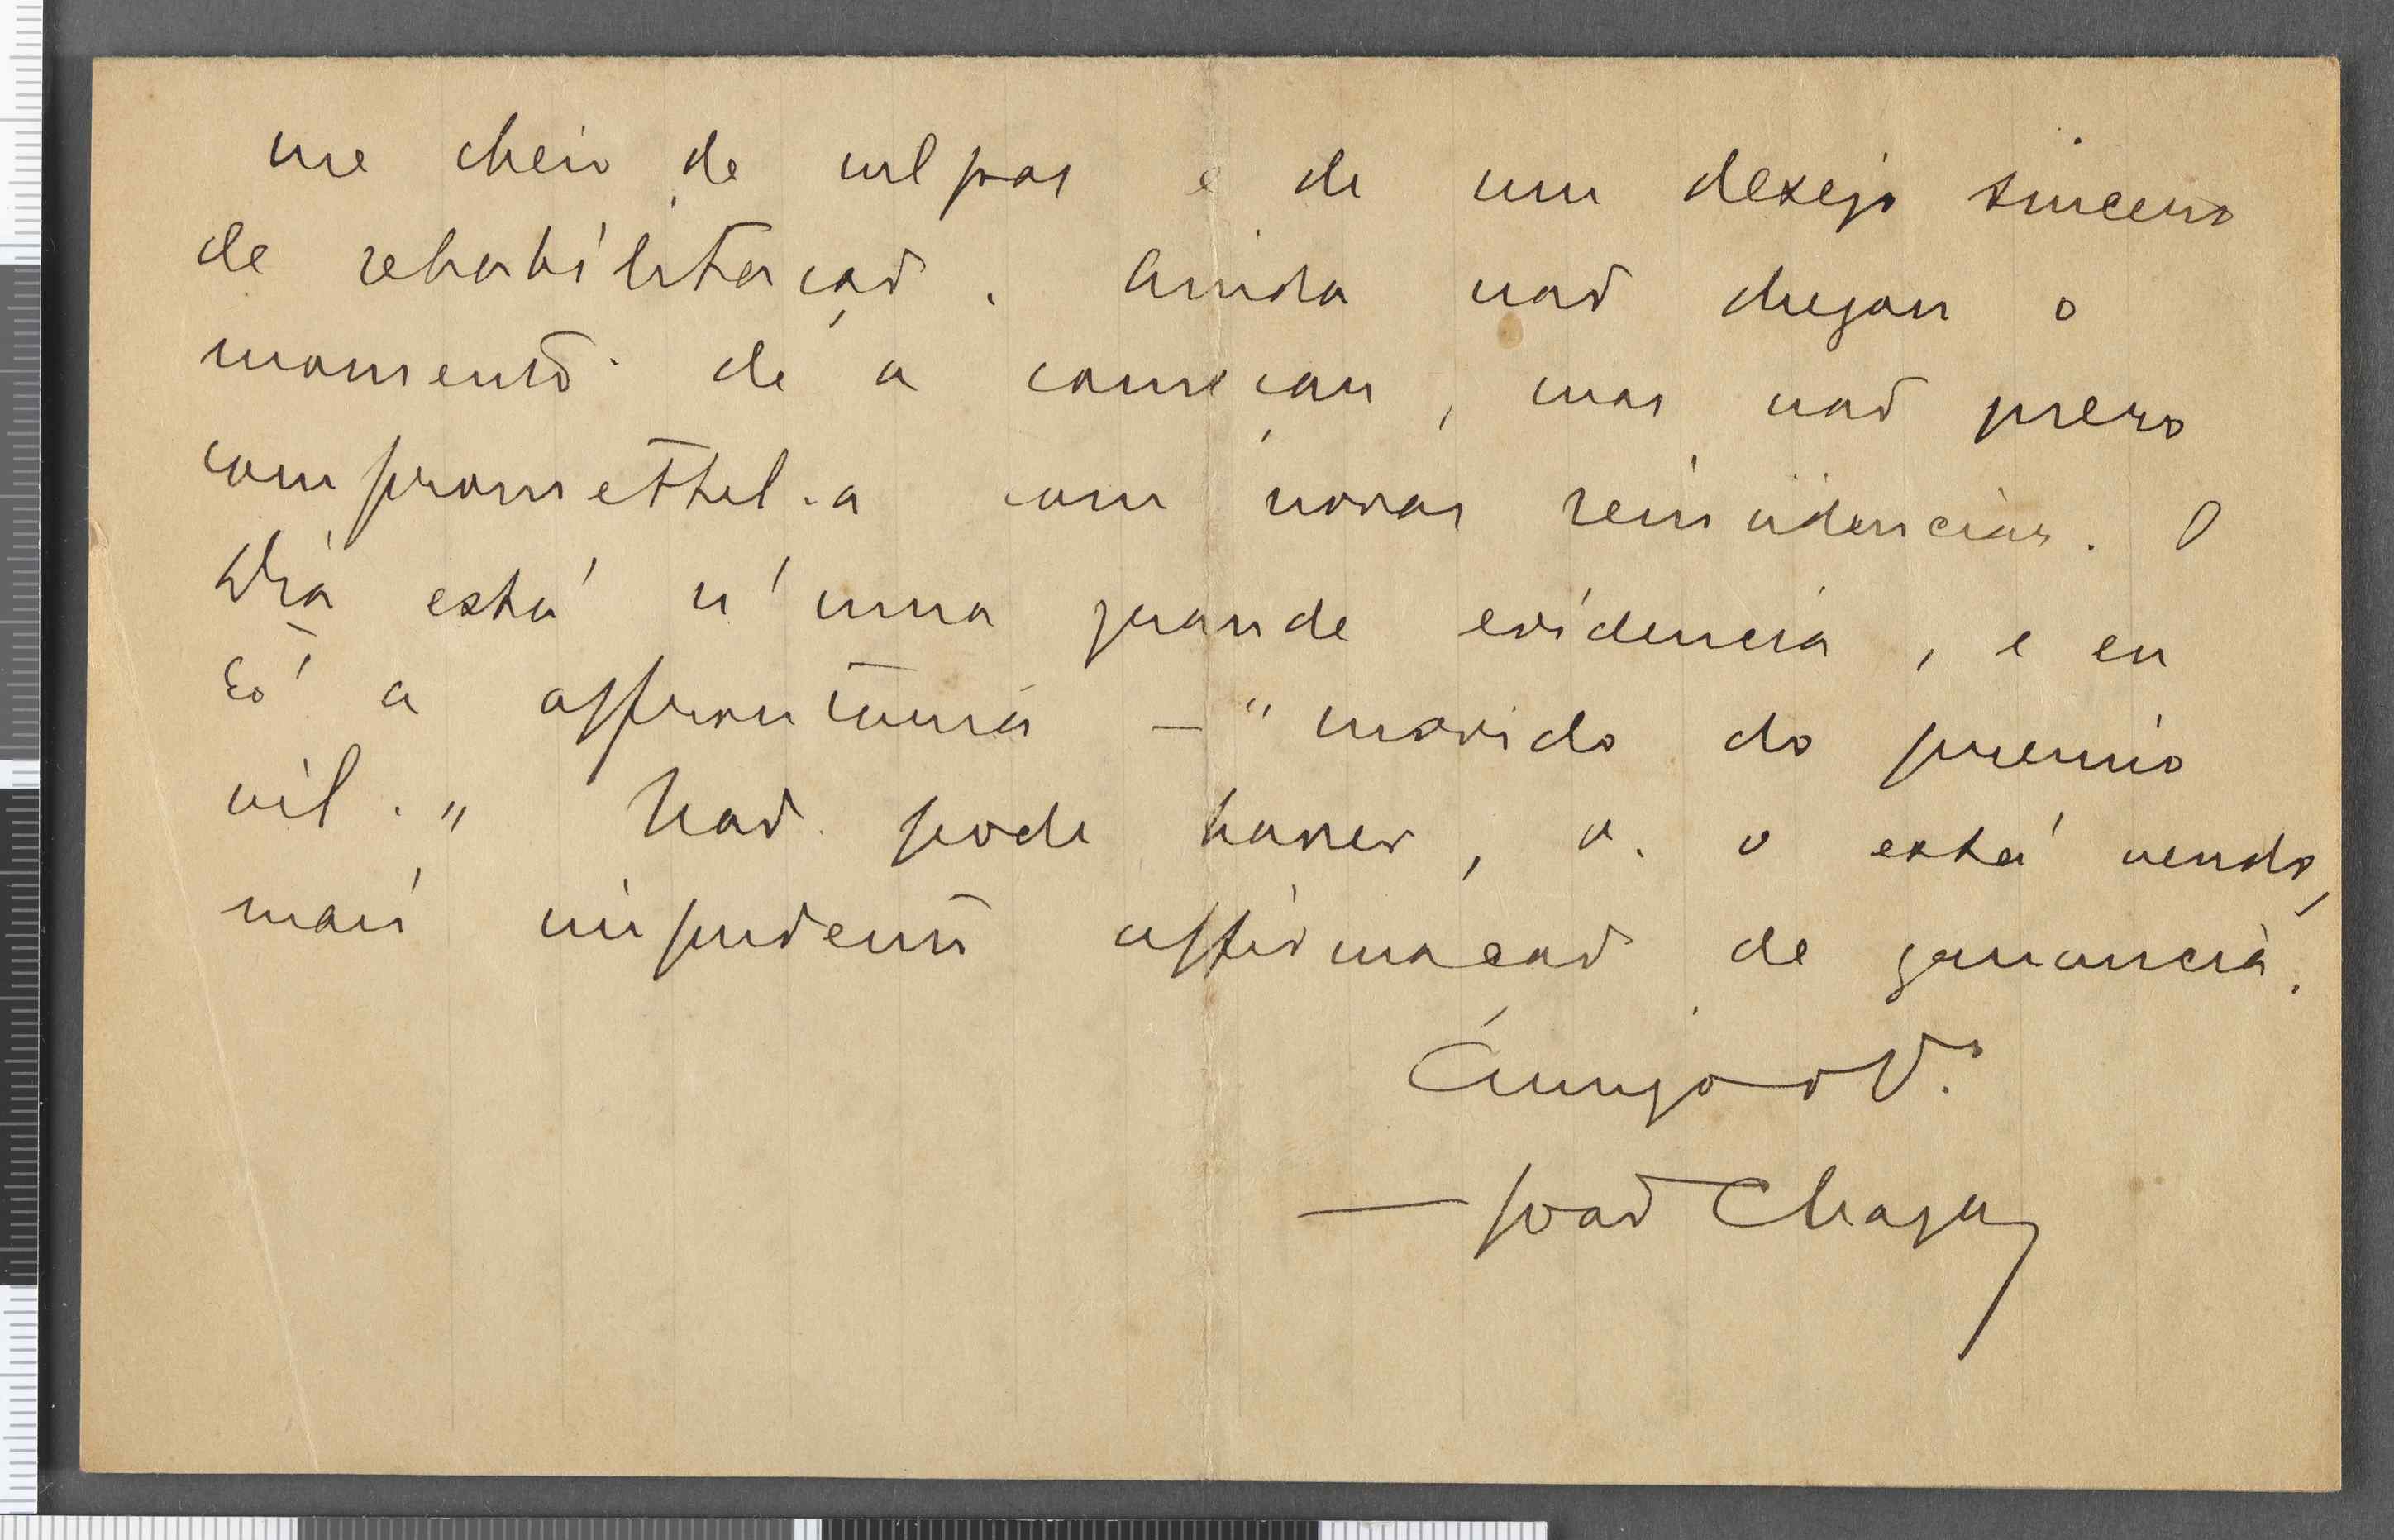 me cheio de culpas e de um desejo sincero
de rehabilitação. Ainda não chegou o
momento de a começar, mas não quero
comprometel-a com novas reincidencias. O
Dia está n'uma grande evidencia, e eu
só a affrontaria — "movido do premio
vil." Não pode haver, v. o está vendo,
mais impudente affirmação de ganancia.
Amigo de V.
— João Chagas